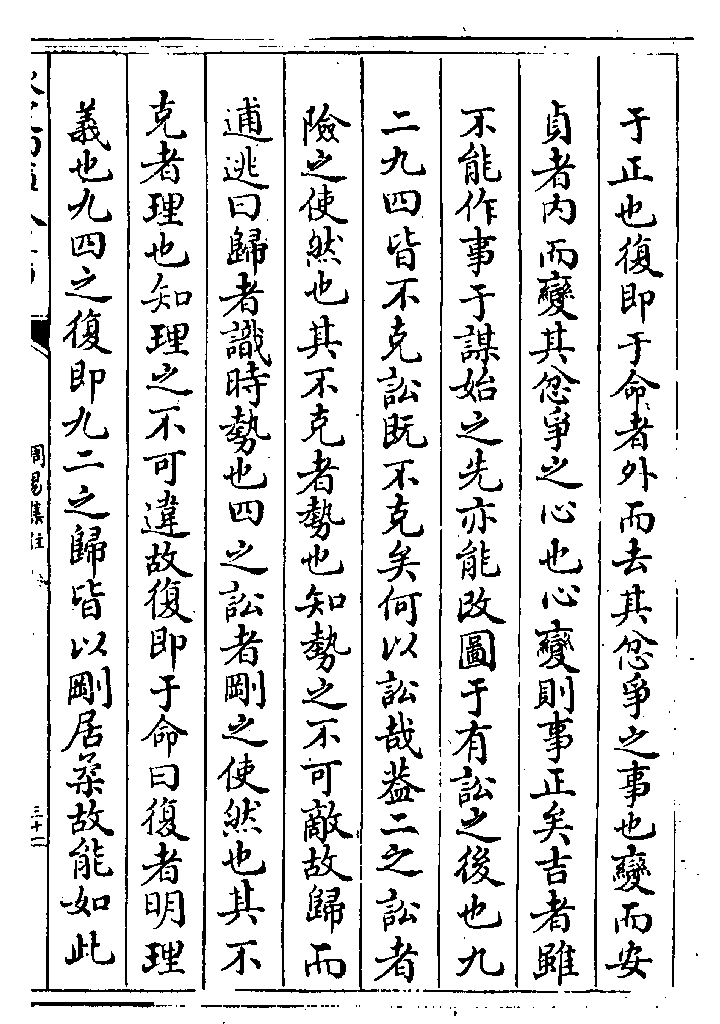 于正也復即于命者外而去其忿爭之事也變而安
貞者内而變其忿爭之心也心變則事正矣吉者雖
不能作事于謀始之先亦能改圖于有訟之後也九
二九四皆不克訟既不克矣何以訟哉葢二之訟者
險之使然也其不克者勢也知勢之不可敵故歸而
逋逃曰歸者識時勢也四之訟者剛之使然也其不
克者理也知理之不可違故復即于命曰復者明理
義也九四之復即九二之歸皆以剛居柔故能如此
周易集註
三十一